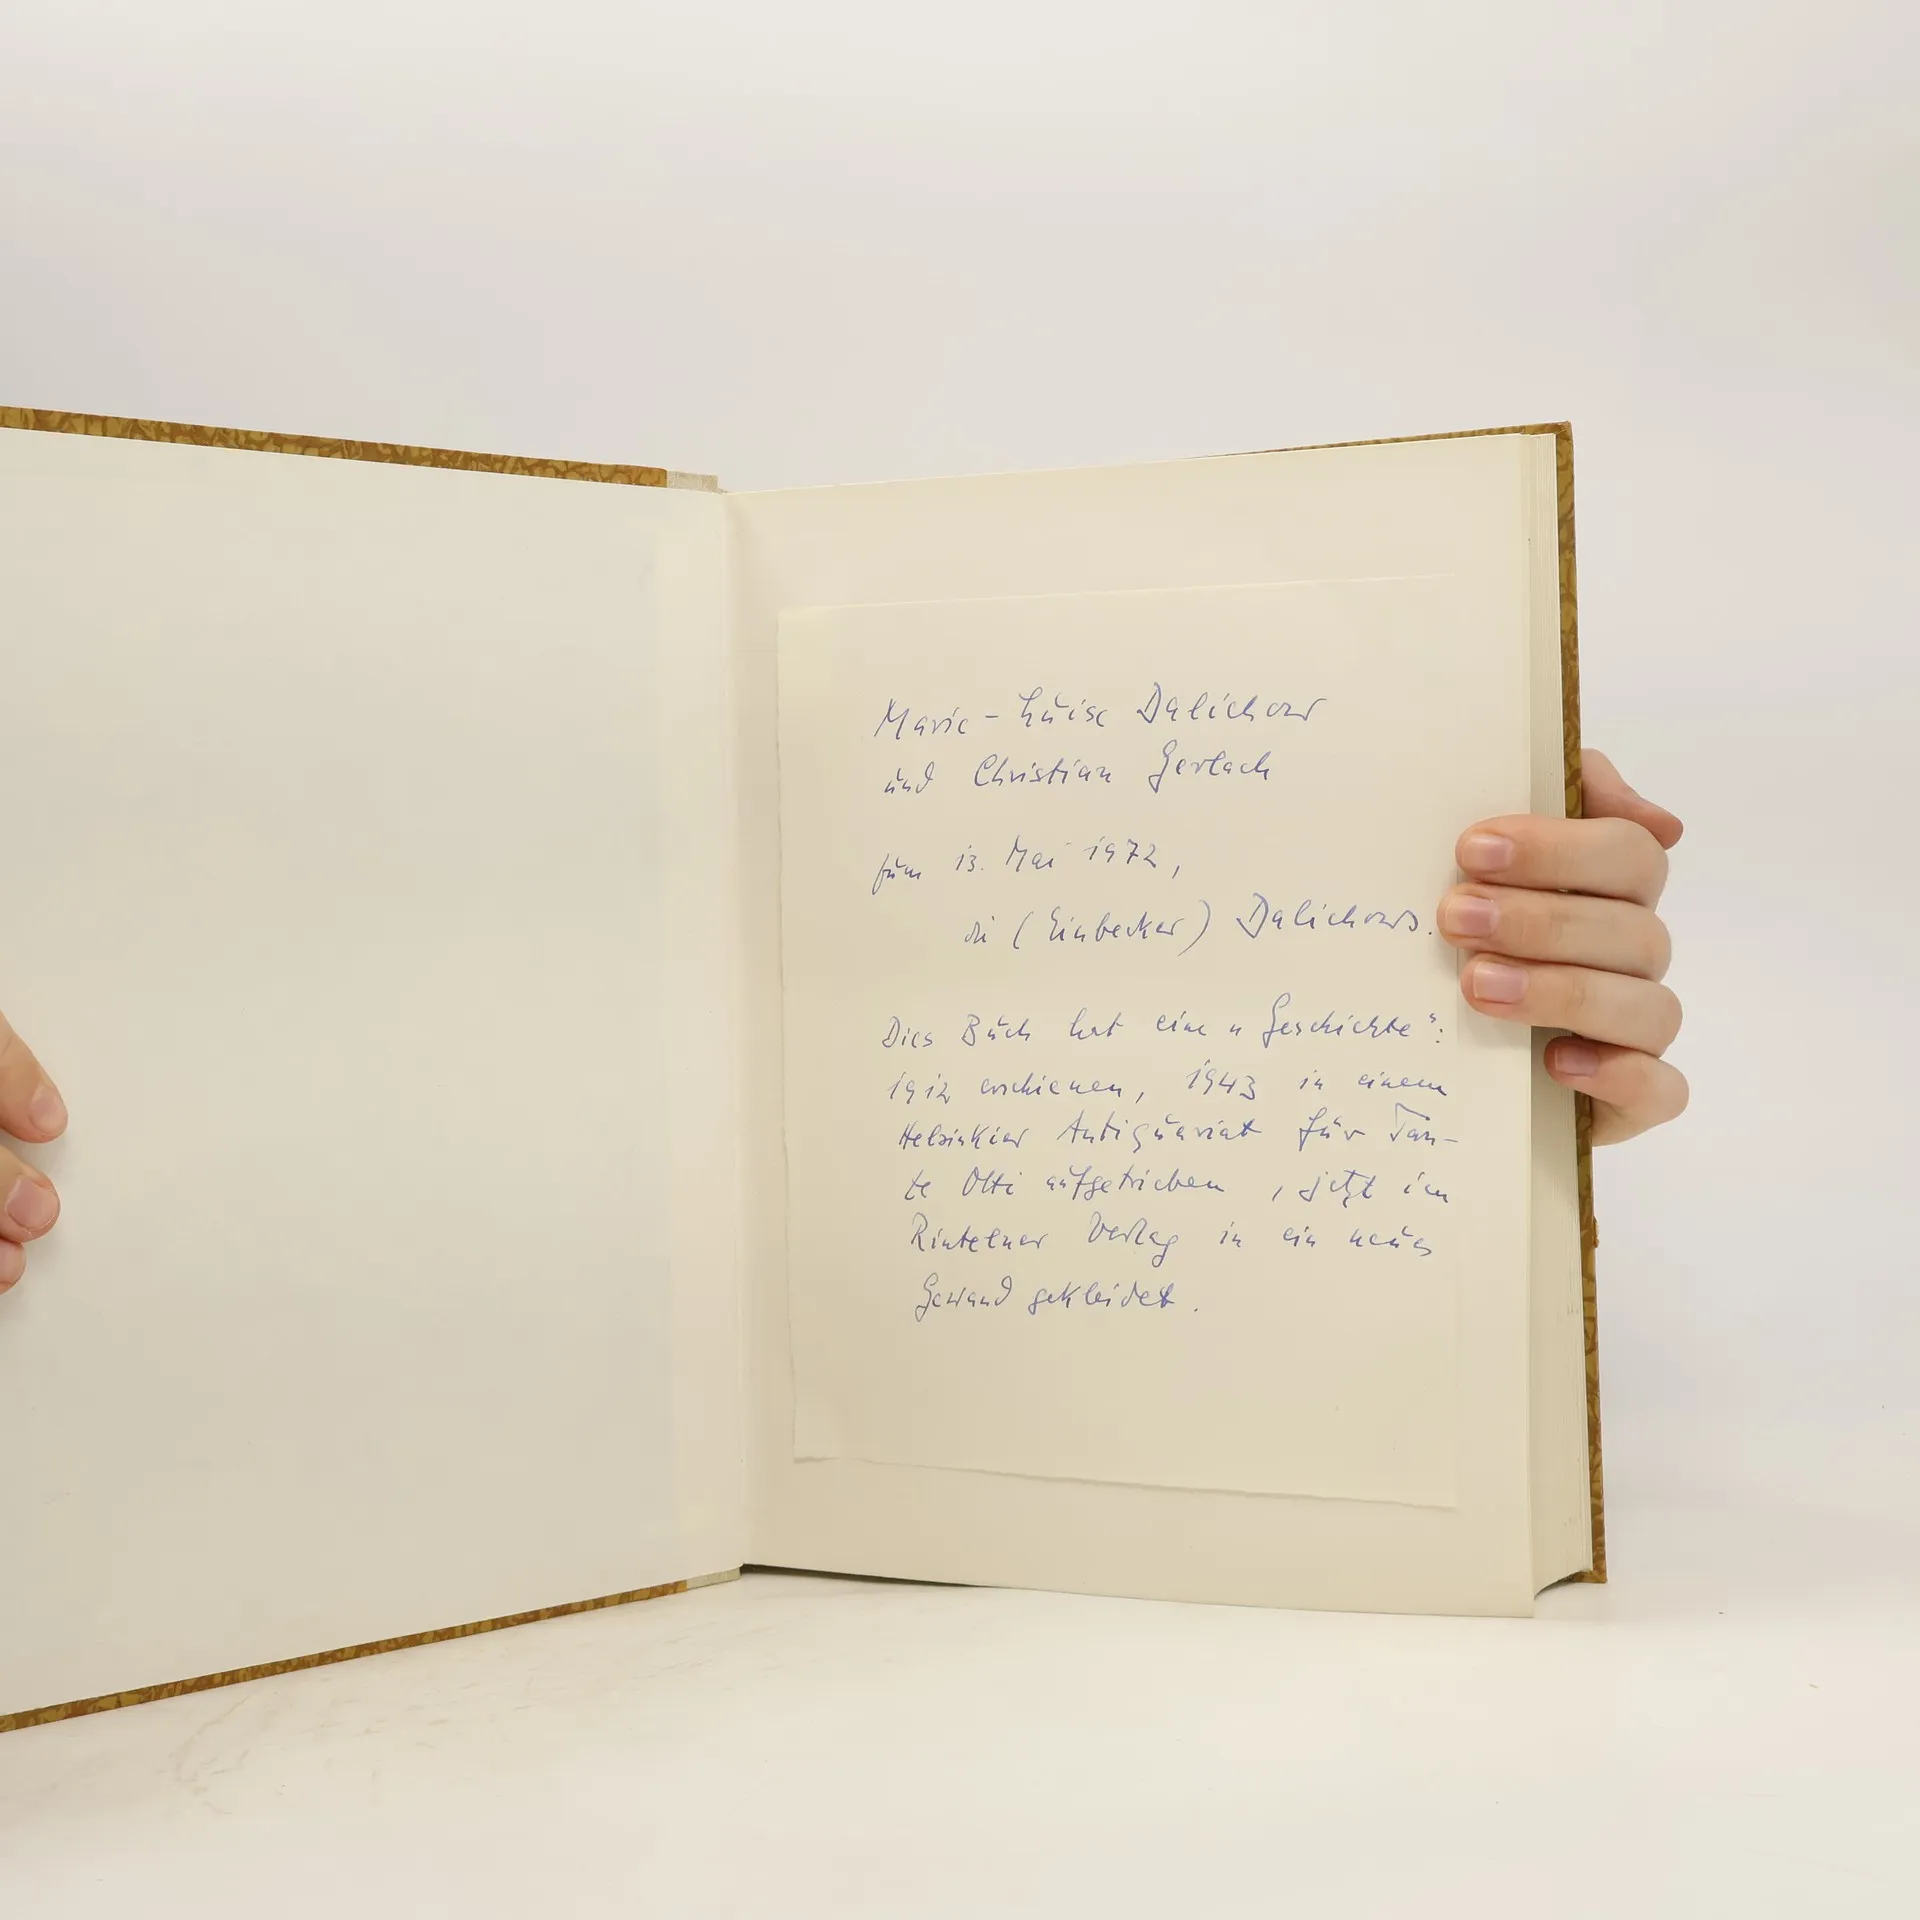 Marie-Luise Dalichow
und Christian Gerlach
zum 13. Mai 1972,
die (Einbecker) Dalichows.
Dies Buch hat eine „Geschichte“:
1912 erschienen, 1943 in einem
Helsinkier Antiquariat für Tan-
te Olti aufgetrieben, jetzt im
Rintelner Verlag in ein neues
Gewand gekleidet.